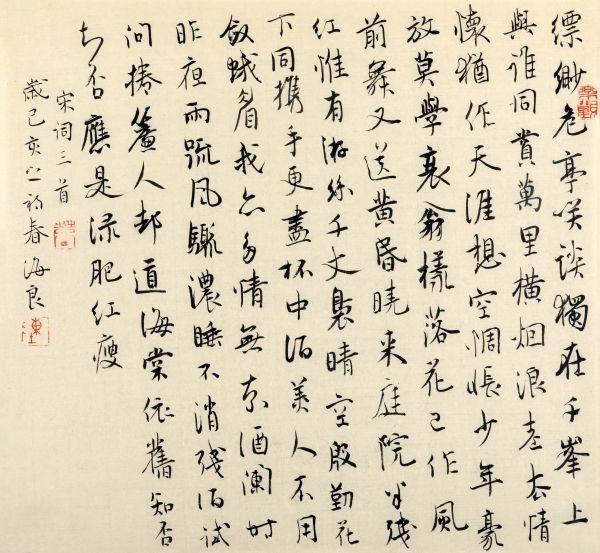 縹緲危亭笑談獨在千峯上
與誰同賞萬里橫烟浪老去情
懷猶作天涯想空惆悵少年豪
放莫學衰翁樣落花已作風
前舞又送黄昏曉来庭院半残
紅惟有游絲千丈裊晴空殷勤花
下同攜手更盡杯中酒美人不用
斂蛾眉我亦多情無奈酒闌時
昨夜雨疏風驟濃睡不消残酒試
問捲簾人却道海棠依舊知否
知否應是绿肥红瘦
宋词三首
歲己亥之初春海良